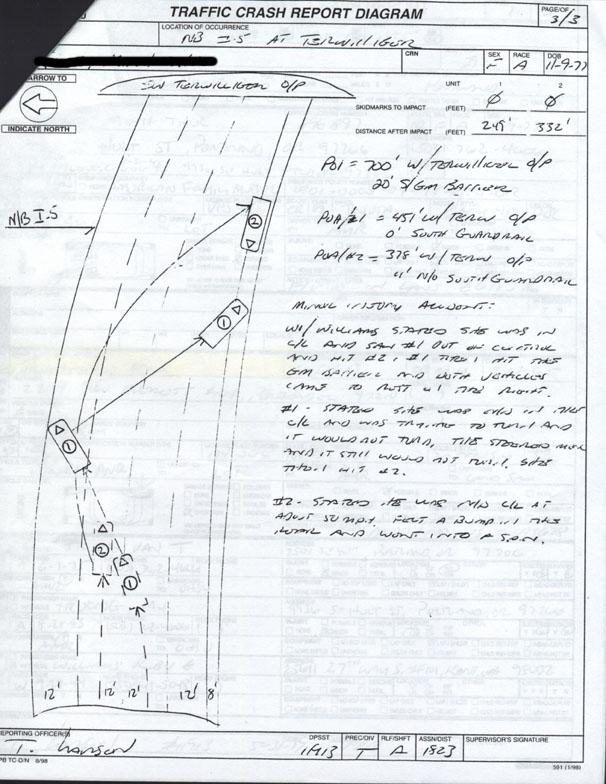 TRAFFIC CRASH REPORT DIAGRAM
PAGE/OF
3/3
LOCATION OF OCCURRENCE
N/B I.5 AT TERWILLIGER
CRN
SEX
F
RACE
A
DOB
11-9-77
ARROW TO
INDICATE NORTH
SW TERWILLIGER O/P
UNIT 1 2
SKIDMARKS TO IMPACT (FEET) Ø Ø
DISTANCE AFTER IMPACT (FEET) 249' 332'
POI = 700' W/TERWILLIGER O/P
20' S/GM BARRIER
POR/#1 = 451' W/ TERW O/P
0' SOUTH GUARDRAIL
POR/#2 = 378' W/ TERW O/P
4' N/O SOUTH GUARDRAIL
N/B I.5
2
1
1
2
1
MINOR INJURY ACCIDENT:
W1/WILLIAMS STATED SHE WAS IN
C/L AND SAW #1 OUT OF CONTROL
AND HIT #2. #1 THEN HIT THE
GM BARRIER AND BOTH VEHICLES
CAME TO REST W/ THE RIGHT.
#1 - STATED SHE WAS N/B IN THE
C/L AND WAS TRYING TO TURN AND
IT WOULD NOT TURN, THE STEERED MORE
AND IT STILL WOULD NOT TURN. SHE
THEN HIT #2.
#2 - STATED HE WAS N/B C/L AT
ABOUT 50 MPH, FELT A BUMP IN THE
REAR AND WENT INTO A SPIN.
12' 12' 12' 12' 8'
REPORTING OFFICER(S)
T. LARSON
DPSST
PREC/DIV
T
RLF/SHFT
A
ASSN/DIST
1823
SUPERVISOR'S SIGNATURE
PB TC-D/N 8/98
591 (1/98)